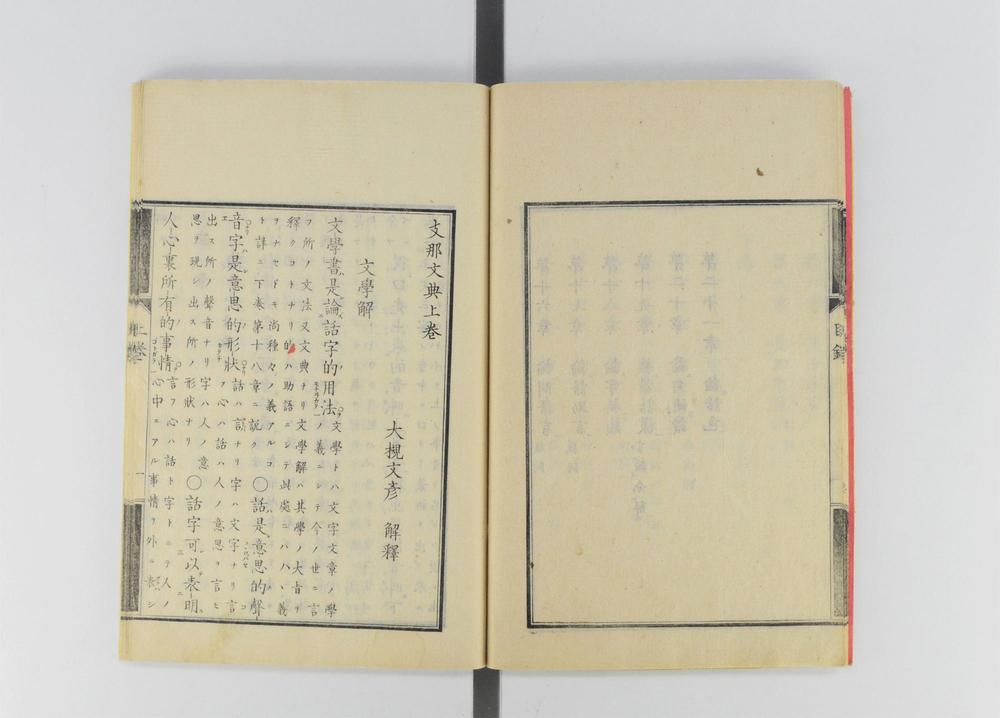 目錄
支那文典上卷
文學解
大槻文彦 解釋
文學書是論話字的用法 文學トハ文字文章ノ學
ノ義ニシテ今ノ世ニ言
フ所ノ文法又文典ナリ文學解ハ其學ノ大旨ヲ
釋クコトナリ的ハ助語ニシテ此處ニハハヽ義
ヲナセドモ尚種々ノ義アルコ
ト詳ニ下卷第十八章ニ説ク ○話是意思的聲
音字是意思的形狀 話ハ ナリ字ハ文字ナリ言
フ心ハ話ハ人ノ意思ヲ言ヒ
出ス所ノ聲音ナリ字ハ人ノ意
思ヲ現シ出ス所ノ形狀ナリ ○話字可以表明
人心裏所有的事情 言フ心ハ話ト字トニテ人ノ
心中ニアル事情ヲ外ニ表シ
上卷
一